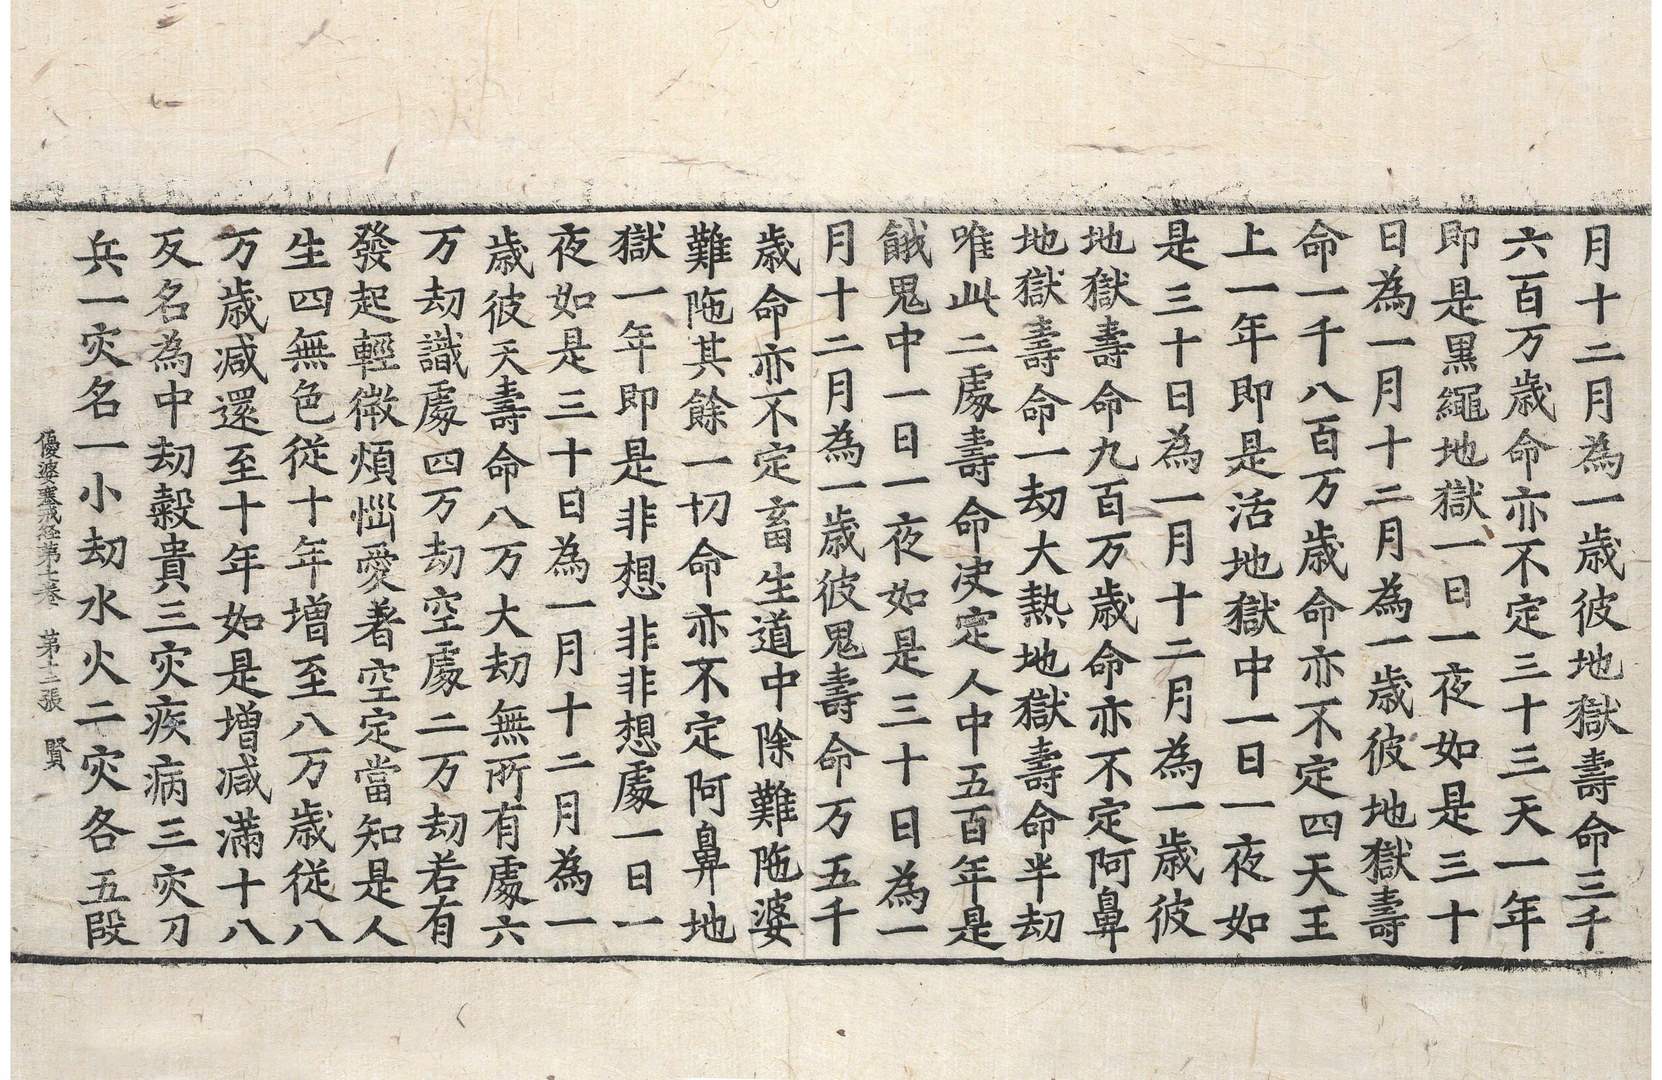 月十二月為一歲彼地獄壽命三千
六百万歲命亦不定三十三天一年
即是黒繩地獄一日一夜如是三十
日為一月十二月為一歲彼地獄壽
命一千八百万歲命亦不定四天王
上一年即是活地獄中一日一夜如
是三十日為一月十二月為一歲彼
地獄壽命九百万歲命亦不定阿鼻
地獄壽命一劫大熱地獄壽命半劫
唯此二處壽命决定人中五百年是
餓鬼中一日一夜如是三十日為一
月十二月為一歲彼鬼壽命万五千
歲命亦不定畜生道中除難陁婆
難陁其餘一切命亦不定阿鼻地
獄一年即是非想非非想處一日一
夜如是三十日為一月十二月為一
歲彼天壽命八万大劫無所有處六
万劫識處四万劫空處二万劫若有
發起輕微煩惱愛著空定當知是人
生四無色從十年增至八万歲從八
万歲减還至十年如是增减滿十八
反名為中劫穀貴三灾疾病三灾刀
兵一灾名一小劫水火二灾各五段
優婆塞戒経第七卷　第十二張　賢